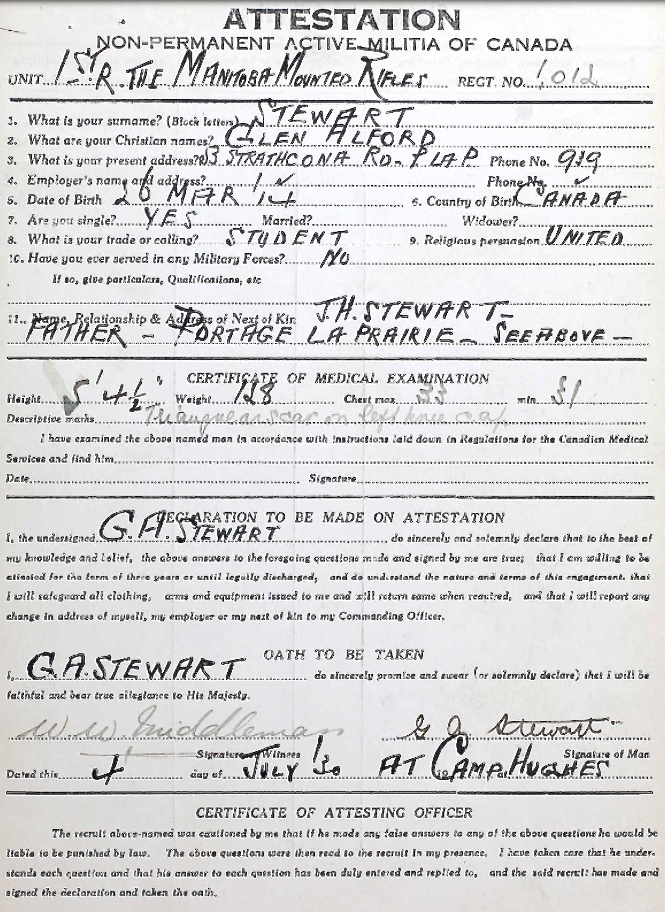 ATTESTATION
NON-PERMANENT ACTIVE MILITIA OF CANADA
UNIT 1ST R. THE MANITOBA MOUNTED RIFLES REGT. NO. 1012
1. What is your surname? (Block letters) STEWART
2. What are your Christian names? GLEN ALFORD
3. What is your present address? STRATHCONA RD- P LA P Phone No. 939
4. Employer's name and address? Phone No.
5. Date of Birth 26 MAR 14 6. Country of Birth CANADA
7. Are you single? YES Married? Widower?
8. What is your trade or calling? STUDENT 9. Religious persuasion UNITED
10. Have you ever served in any Military Forces? NO
If so, give particulars, Qualifications, etc
11. Name, Relationship & Address of Next of Kin J.H. STEWART-
FATHER - PORTAGE LA PRAIRIE - SEE ABOVE -
CERTIFICATE OF MEDICAL EXAMINATION
Height 5' 4½ Weight 128 Chest max 33 min. 31
Descriptive marks Triangular scar on left knee cap
I have examined the above named man in accordance with instructions laid down in Regulations for the Canadian Medical
Services and find him
Date Signature
DECLARATION TO BE MADE ON ATTESTATION
I, the undersigned G.A. STEWART, do sincerely and solemnly declare that to the best of
my knowledge and belief, the above answers to the foregoing questions made and signed by me are true; that I am willing to be
attested for the term of three years or until legally discharged, and do understand the nature and terms of this engagement, that
I will safeguard all clothing, arms and equipment issued to me and will return same when required, and that I will report any
change in address of myself, my employer or my next of kin to my Commanding Officer.
OATH TO BE TAKEN
I, G.A STEWART do sincerely promise and swear (or solemnly declare) that I will be
faithful and bear true allegiance to His Majesty.
W. W. Middlemass G A Stewart
Signature Witness Signature of Man
Dated this 4 day of JULY '30 19 at AT CAMP HUGHES
CERTIFICATE OF ATTESTING OFFICER
The recruit above-named was cautioned by me that if he made any false answers to any of the above questions he would be
liable to be punished by law. The above questions were then read to the recruit in my presence. I have taken care that he under-
stands each question and that his answer to each question has been duly entered and replied to, and the said recruit has made and
signed the declaration and taken the oath.